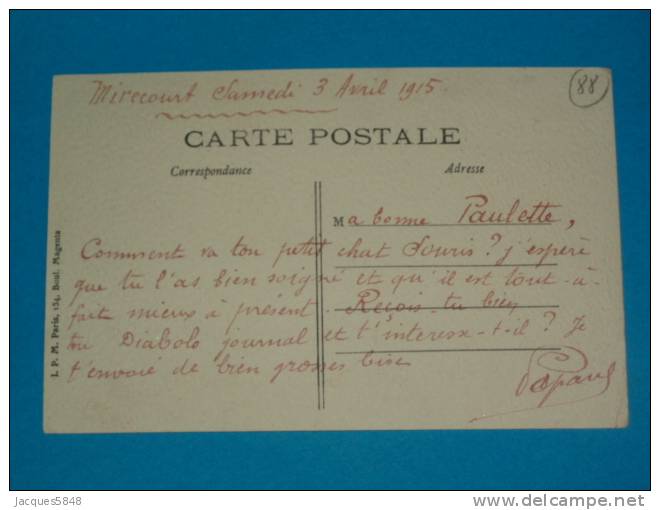 Mirecourt Samedi 3 Avril 1915
88
CARTE POSTALE
Correspondance
Adresse
Ma bonne Paulette,
Comment va ton petit chat Souris? j'espère
que tu l'as bien soigné et qu'il est tout-à-
fait mieux à présent. Reçois-tu bien
ton Diabolo journal et t'interesse-t-il? Je
t'envoie de bien grosses bises
I. P. M. Paris, 154, Boul. Magenta
Jacques5848
www.delcampe.net